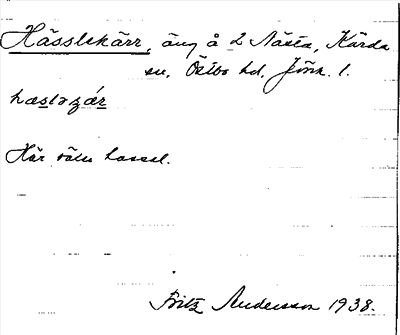 Hässlekärr, äng å 2 Nästa, Kärda
sn, Östbo hd, Jönk. l.
hæsləʒǽr
Här växer hassel.
Fritz Andersson 1938.